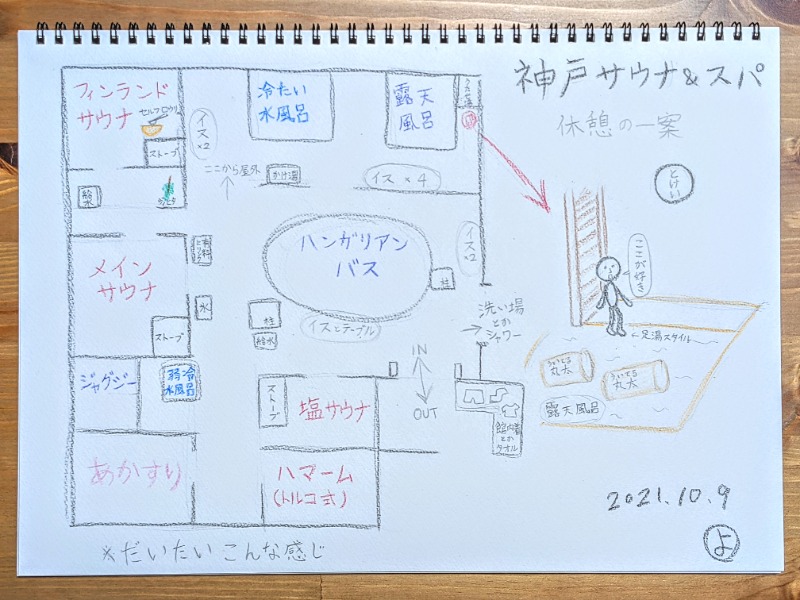 神戸サウナ&スパ
休憩の一案
フィンランド
サウナ
セルフロウリュ
ストーブ
イス
×2
冷たい
水風呂
露天
風呂
ここから屋外
↑
かけ湯
イス×4
給
水
メイン
サウナ
ストーブ
水
ハンガリアン
バス
イス
×2
柱
柱
イスとテーブル
給水
洗い場
とか
シャワー
→
ジャグジー
弱冷
水風呂
ストーブ
塩サウナ
IN
OUT
館内着
とか
タオル
あかすり
ハマーム
(トルコ式)
※だいたいこんな感じ
とけい
ここが好き
←足湯スタイル
ういてる
丸太
ういてる
丸太
露天風呂
2021.10.9
よ